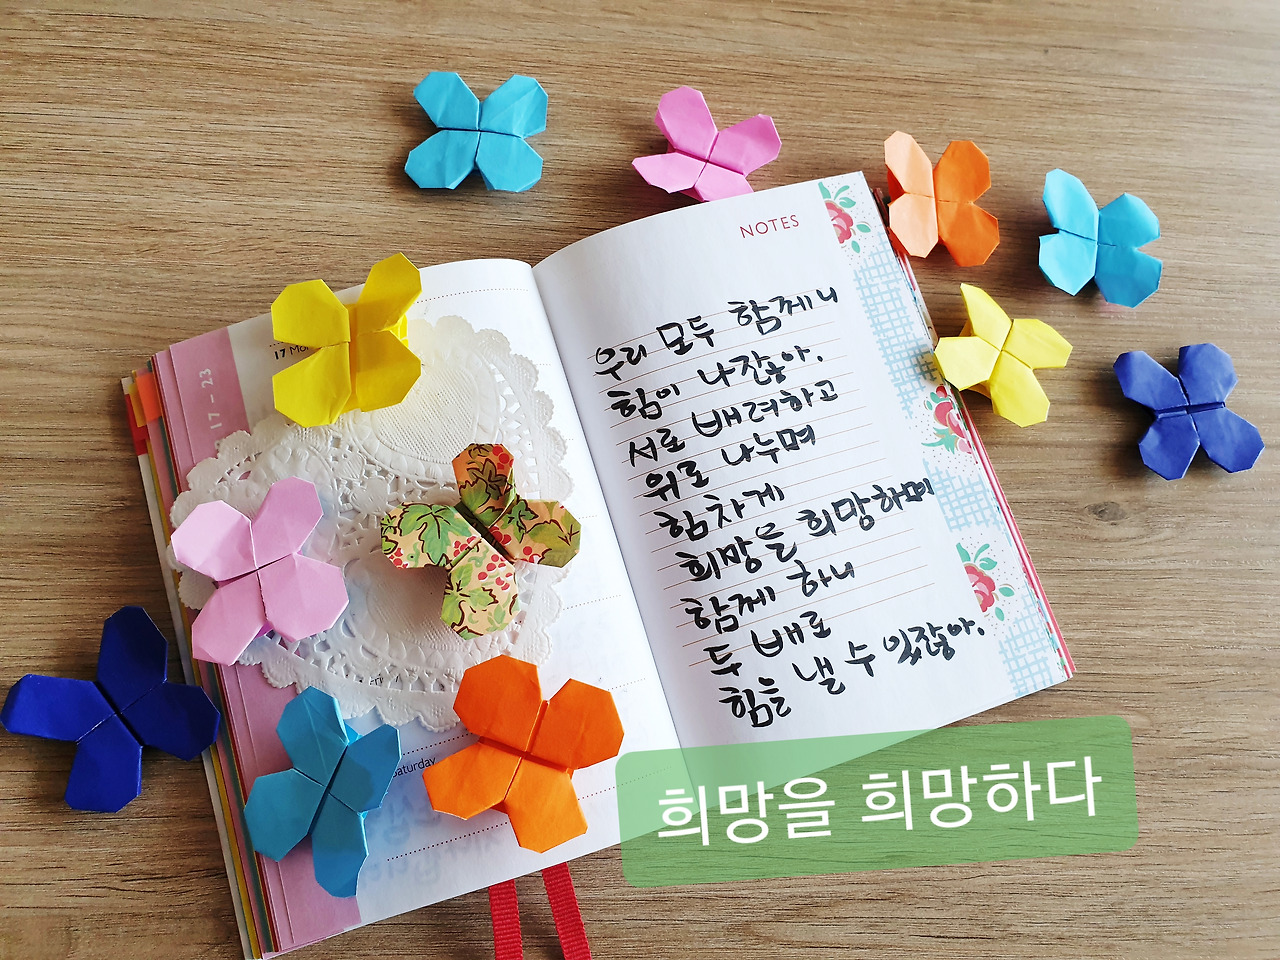 17 - 23
17 Mo
Saturday
NOTES
우리 모두 함께니
힘이 나잖아.
서로 배려하고
위로 나누며
힘차게
희망을 희망하며
함께 하니
두 배로
힘을 낼 수 있잖아.
희망을 희망하다